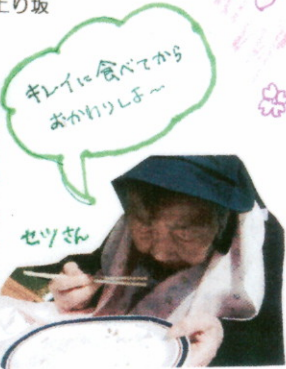 上り坂
キレイに食べてから
おかわりしよ〜
セツさん